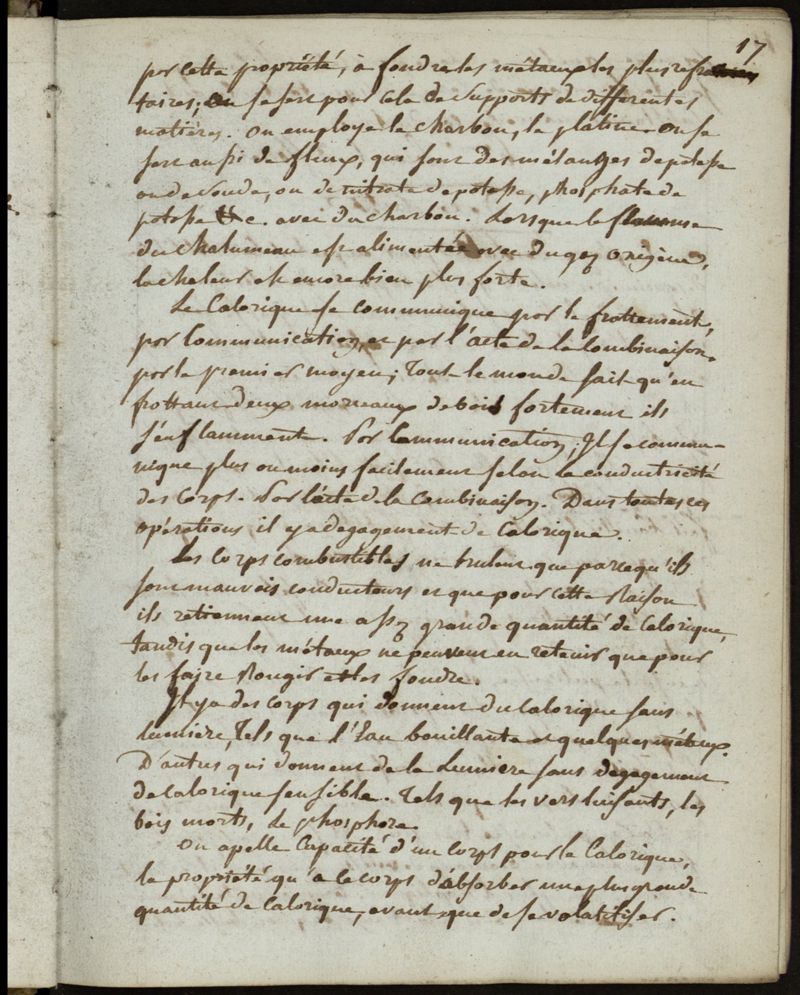 17
par cette propriété, à fondre les métaux les plus refrac
taires; on se sert pour cela de Supports de differentes
matières. on employe le charbon, le platine. on se
sert aussi de flux, qui sont des mélanges de potasse
ou de Soude, ou de nitrate de potasse, phosphate de
potasse &c. avec du charbon. Lorsque la flamme
du chalumeau est alimentée avec du gaz oxigène,
la chaleur est encore bien plus forte.
Le Calorique se communique par le frottement,
par Communication, et par l'acte de la Combinaison.
par le premier moyen; Tout le monde sait qu'en
frottant deux morceaux de bois fortement ils
s'enflamment. Par Communication; Il se commu-
nique plus ou moins facilement selon la conductricité
des Corps. Par l'acte de la Combinaison. Dans toutes ces
opérations il y a degagement de Calorique.
Les Corps combustibles ne brulent que parcequ'ils
sont mauvais conducteurs et que pour cette Raison
ils retiennent une assez grande quantité de Calorique,
tandis que les métaux ne peuvent en retenir que pour
les faire Rougir et les fondre.
Il y a des Corps qui donnent du Calorique sans
Lumière, Tels que l'Eau bouillante et quelques métaux.
D'autres qui donnent de la Lumière sans degagement
de Calorique sensible. Tels que les vers luisants, les
bois morts, le phosphore.
On apelle Capacité d'un Corps pour le Calorique,
la propriété qu'a le corps d'absorber une plus grande
quantité de Calorique, avant que de se volatiliser.